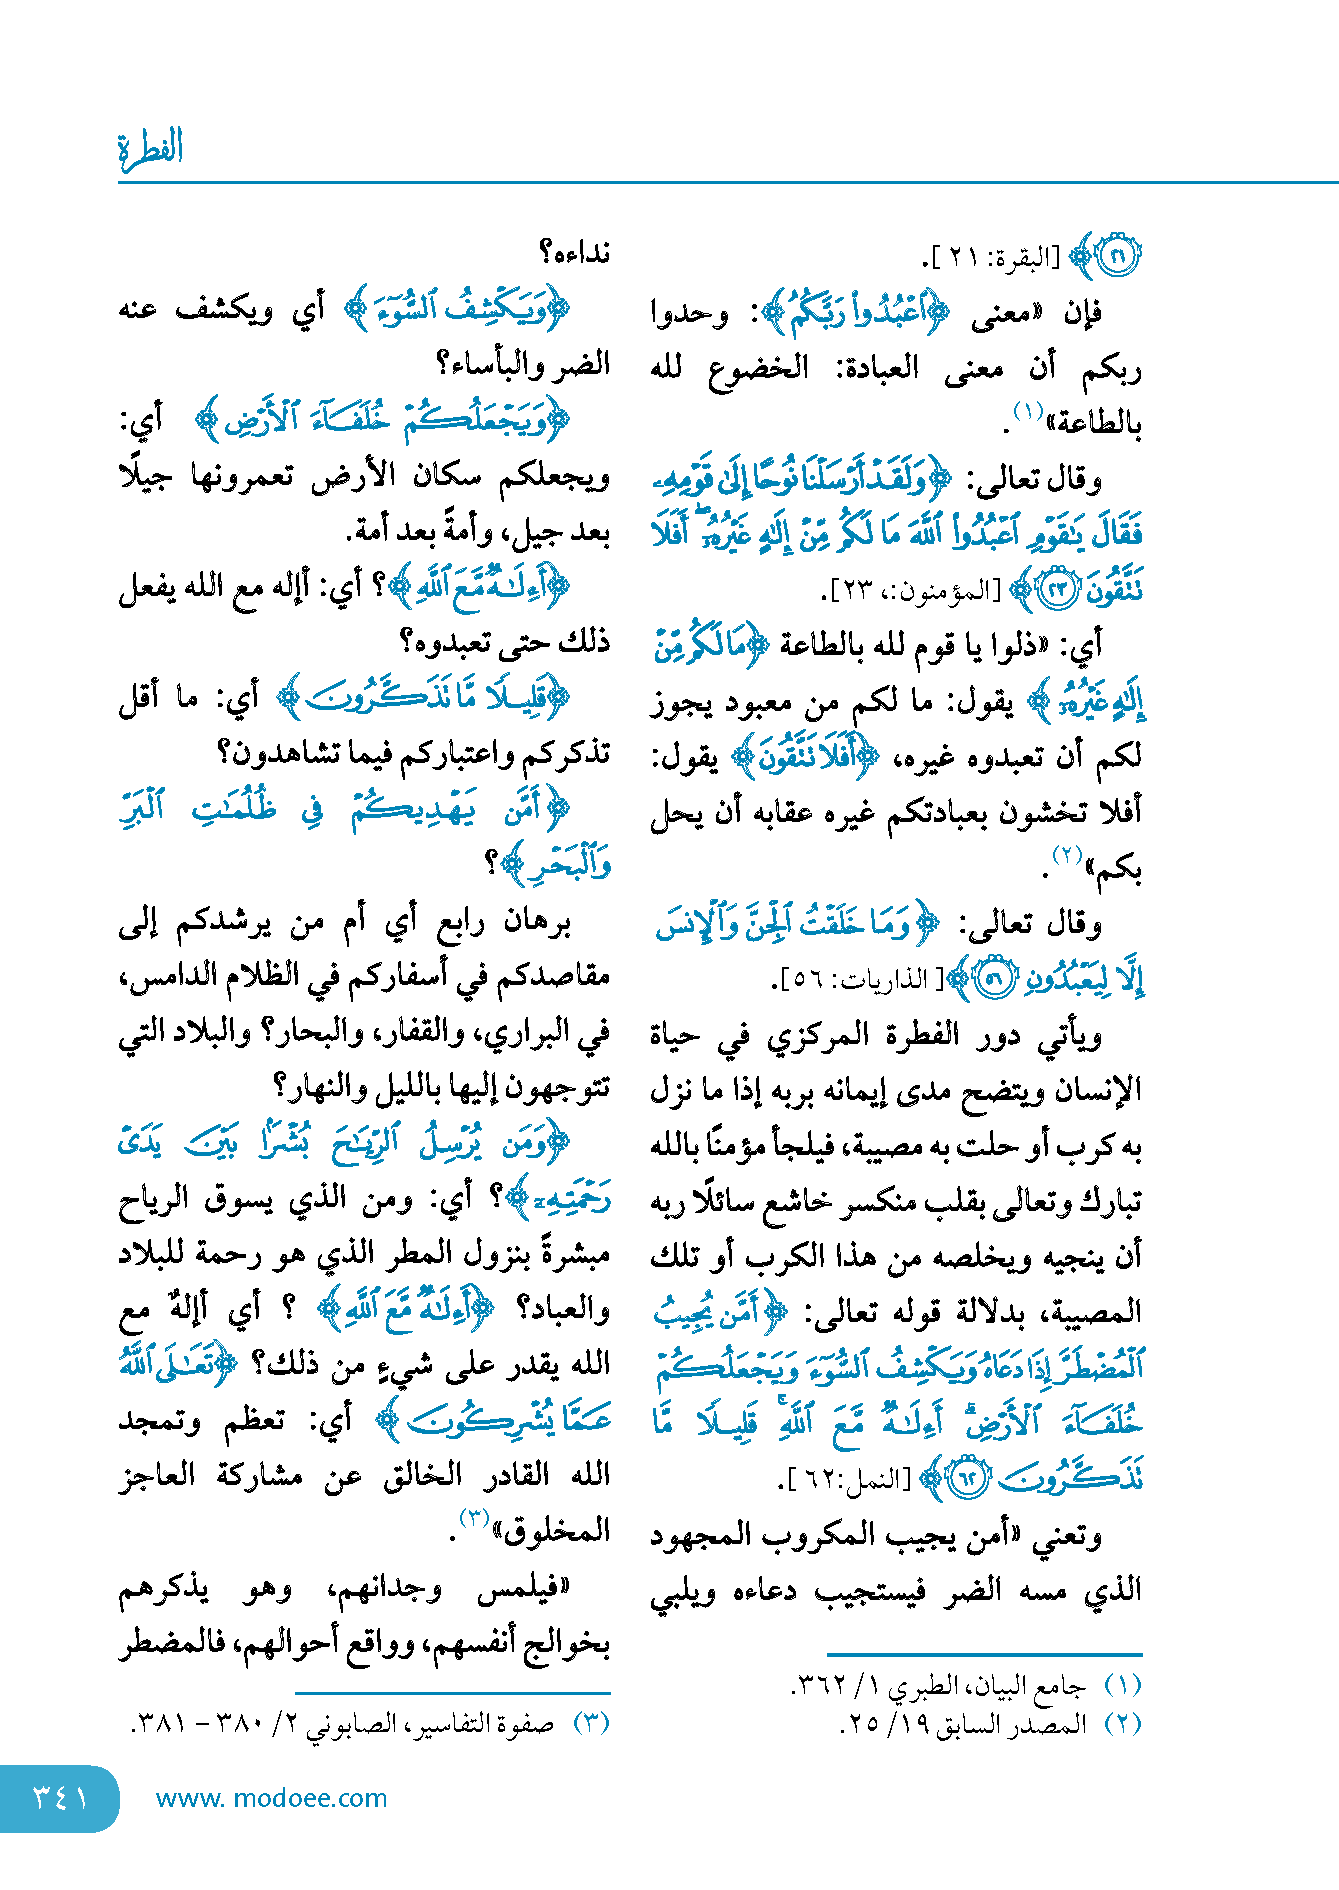 الفطرة
﴿٢١﴾ [البقرة: ٢١ ].
فإن «معنى ﴿ٱعۡبُدُواْ رَبَّكُمُ﴾: وحدوا
ربكم أن معنى العبادة: الخضوع لله
بالطاعة»(١).
وقال تعالى: ﴿وَلَقَدۡ أَرۡسَلۡنَا نُوحًا إِلَىٰ قَوۡمِهِۦ
فَقَالَ يَٰقَوۡمِ ٱعۡبُدُواْ ٱللَّهَ مَا لَكُم مِّنۡ إِلَٰهٍ غَيۡرُهُۥٓۖ أَفَلَا
تَتَّقُونَ ﴿٢٣﴾ [المؤمنون:، ٢٣].
أي: «ذلوا يا قوم لله بالطاعة ﴿مَا لَكُم مِّنۡ
إِلَٰهٍ غَيۡرُهُۥٓ﴾ يقول: ما لكم من معبود يجوز
لكم أن تعبدوه غيره، ﴿أَفَلَا تَتَّقُونَ﴾ يقول:
أفلا تخشون بعبادتكم غيره عقابه أن يحل
بكم»(٢).
وقال تعالى: ﴿وَمَا خَلَقۡتُ ٱلۡجِنَّ وَٱلۡإِنسَ
إِلَّا لِيَعۡبُدُونِ ﴿٥٦﴾ [ الذاريات: ٥٦].
ويأتي دور الفطرة المركزي في حياة
الإنسان ويتضح مدى إيمانه بربه إذا ما نزل
به كرب أو حلت به مصيبة، فيلجأ مؤمنًا بالله
تبارك وتعالى بقلب منكسر خاشع سائلًا ربه
أن ينجيه ويخلصه من هذا الكرب أو تلك
المصيبة، بدلالة قوله تعالى: ﴿أَمَّن يُجِيبُ
ٱلۡمُضۡطَرَّ إِذَا دَعَاهُ وَيَكۡشِفُ ٱلسُّوٓءَ وَيَجۡعَلُكُمۡ
خُلَفَآءَ ٱلۡأَرۡضِۗ أَءِلَٰهٞ مَّعَ ٱللَّهِۚ قَلِيلٗا مَّا
تَذَكَّرُونَ ﴿٦٢﴾ [النمل:٦٢ ].
وتعني «أمن يجيب المكروب المجهود
الذي مسه الضر فيستجيب دعاءه ويلبي
(١) جامع البيان، الطبري ١/ ٣٦٢.
(٢) المصدر السابق ١٩/ ٢٥.
نداءه؟
﴿وَيَكۡشِفُ ٱلسُّوٓءَ﴾ أي ويكشف عنه
الضر والبأساء؟
﴿وَيَجۡعَلُكُمۡ خُلَفَآءَ ٱلۡأَرۡضِ﴾ أي:
ويجعلكم سكان الأرض تعمرونها جيلًا
بعد جيل، وأمةً بعد أمة.
﴿أَءِلَٰهٞ مَّعَ ٱللَّهِ﴾ ؟ أي: أإله مع الله يفعل
ذلك حتى تعبدوه؟
﴿قَلِيلٗا مَّا تَذَكَّرُونَ﴾ أي: ما أقل
تذكركم واعتباركم فيما تشاهدون؟
﴿أَمَّن يَهۡدِيكُمۡ فِي ظُلُمَٰتِ ٱلۡبَرِّ
وَٱلۡبَحۡرِ﴾؟
برهان رابع أي أم من يرشدكم إلى
مقاصدكم في أسفاركم في الظلام الدامس،
في البراري، والقفار، والبحار؟ والبلاد التي
تتوجهون إليها بالليل والنهار؟
﴿وَمَن يُرۡسِلُ ٱلرِّيَٰحَ بُشۡرَۢا بَيۡنَ يَدَيۡ
رَحۡمَتِهِۦ﴾؟ أي: ومن الذي يسوق الرياح
مبشرةً بنزول المطر الذي هو رحمة للبلاد
والعباد؟ ﴿أَءِلَٰهٞ مَّعَ ٱللَّهِ﴾ ؟ أي أإلهٌ مع
الله يقدر على شيءٍ من ذلك؟ ﴿تَعَٰلَى ٱللَّهُ
عَمَّا يُشۡرِكُونَ﴾ أي: تعظم وتمجد
الله القادر الخالق عن مشاركة العاجز
المخلوق»(٣).
«فيلمس وجدانهم، وهو يذكرهم
بخوالج أنفسهم، وواقع أحوالهم، فالمضطر
(٣) صفوة التفاسير، الصابوني ٢/ ٣٨٠ – ٣٨١.
www. modoee.com
٣٤١